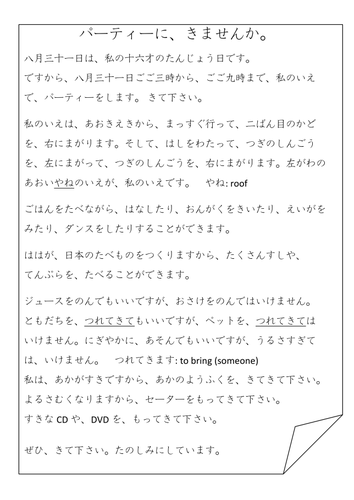 パーティーに、きませんか。
八月三十一日は、私の十六才のたんじょう日です。
ですから、八月三十一日ごご三時から、ごご九時まで、私のいえ
で、パーティーをします。 きて下さい。
私のいえは、あおさえきから、まっすぐ行って、二ばん目のかど
を、右にまがります。そして、はしをわたって、つぎのしんごう
を、左にまがって、つぎのしんごうを、右にまがります。左がわの
あおいやねのいえが、私のいえです。 やね: roof
ごはんをたべながら、はなしたり、おんがくをきいたり、えいがを
みたり、ダンスをしたりすることができます。
ははが、日本のたべものをつくりますから、たくさんすしや、
てんぷらを、たべることができます。
ジュースをのんでもいいですが、おさけをのんではいけません。
ともだちを、つれてきてもいいですが、ペットを、つれてきては
いけません。にぎやかに、あそんでもいいですが、うるさすぎて
は、いけません。 つれてきます: to bring (someone)
私は、あかがすきですから、あかのようふくを、きてきて下さい。
よるさむくなりますから、セーターをもってきて下さい。
すきな CD や、DVD を、もってきて下さい。
ぜひ、きて下さい。たのしみにしています。